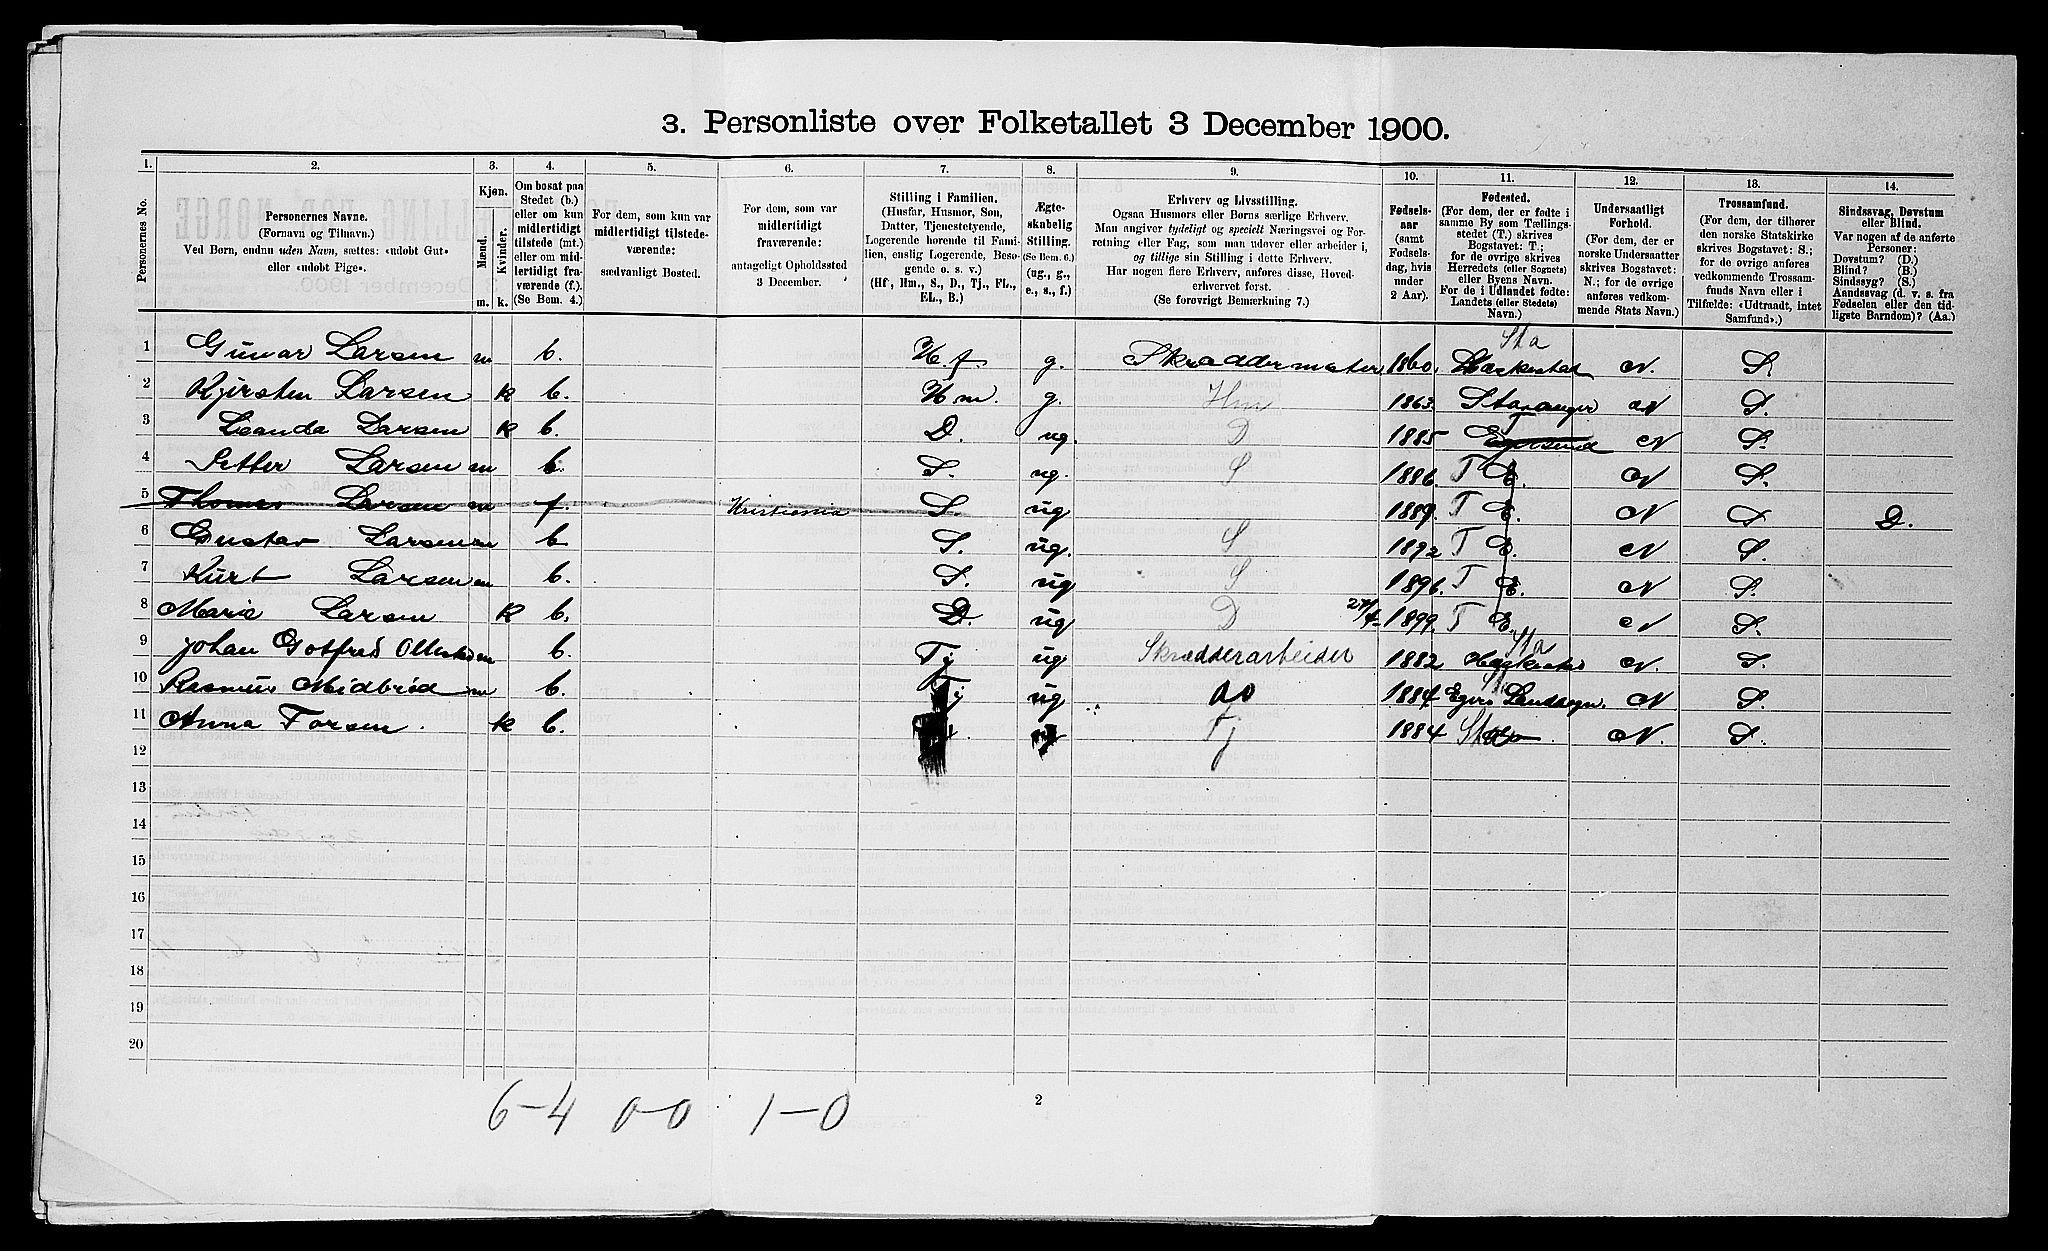 3. Personliste over Folketallet 3 December 1900.
1. 2. 3. 4. 5. 6. 7. 8. 9. 10. 11. 12. 13. 14.
Personernes No.
Personernes Navne.
(Fornavn og Tilnavn.)
Ved Børn, endnu uden Navn, sættes: «udobt Gut»
eller «udobt Pige».
Kjøn.
Mænd.
Kvinder.
m. k.
Om bosat paa
Stedet (b.)
eller om kun
midlertidigt
tilstede (mt.)
eller om mid-
lertidigt fra-
værende (f.).
(Se Bem. 4.)
For dem, som kun var
midlertidigt tilstede-
værende:
sædvanligt Bosted.
For dem, som var
midlertidigt
fraværende:
antageligt Opholdssted
3 December.
Stilling i Familien.
(Husfar, Husmor, Søn,
Datter, Tjenestetyende,
Logerende hørende til Fami-
lien, enslig Logerende, Besø-
gende o. s. v.)
(Hf, Hm., S., D., Tj., FL.,
EL., B.)
Ægte-
skabelig
Stilling.
(Se Bem. 6.)
(ug., g.,
e., s., f.)
Erhverv og Livsstilling.
Ogsaa Husmors eller Børns særlige Erhverv.
Man angiver tydeligt og specielt Næringsvei og For-
retning eller Fag, som man udøver eller arbeider i,
og tillige sin Stilling i dette Erhverv.
Har nogen flere Erhverv, anføres disse, Hoved-
erhvervet først.
(Se forøvrigt Bemærkning 7.)
Fødsels-
aar
(samt
Fødsels-
dag, hvis
under
2 Aar).
Fødested.
(For dem, der er fødte i
samme By som Tællings-
stedet (T.) skrives
Bogstavet: T.;
for de øvrige skrives
Herredets (eller Sognets)
eller Byens Navn.
For de i Udlandet fødte:
Landets (eller Stedets)
Navn.)
Undersaatligt
Forhold.
(For dem, der er
norske Undersaatter
skrives Bogstavet:
N.; for de øvrige
anføres vedkom-
mende Stats Navn.)
Trossamfund.
(For dem, der tilhører
den norske Statskirke
skrives Bogstavet: S.;
for de øvrige anføres
vedkommende Trossam-
funds Navn eller i
Tilfælde: «Udtraadt, intet
Samfund».)
Sindssvag, Døvstum
eller Blind.
Var nogen af de anførte
Personer:
Døvstum? (D.)
Blind? (B.)
Sindssyg? (S.)
Aandssvag (d. v. s. fra
Fødselen eller den tid-
ligste Barndom)? (Aa.)
Sta
1 Gunar Larsen m b. H.f. g. Skræddermester 1860. N. S.
2 Kjirsten Larsen k b. Hm. g. Hm 1863. Stavanger N S.
3 Leanda Larsen k b. D. ug. D 1885 T Egersund N S.
4 Petter Larsen m b. S. ug. S 1886. T E. N S.
5 Thomas Larsen m f. Kristiania S. ug 1889. T E. N S D.
6 Gustav Larsen m b S. ug. S 1892 T E. N S.
7 Kurt Larsen m b. S. ug S 1896. T E. N S.
8 Marie Larsen k b. D. ug D 27/4 1899. T E. N S.
Sta
9 Johan Gotfred m b. Tj ug Skrædderarbeider 1882 N. S.
10 Rasmus Midbrød m b. Tj ug do 1884 Egers Landsogn. N S.
11 Anna Torsen k b. ug Tj 1884 N. S.
12
13
14
15
16
17
18
19
20
6-4 0-0 1-0
2